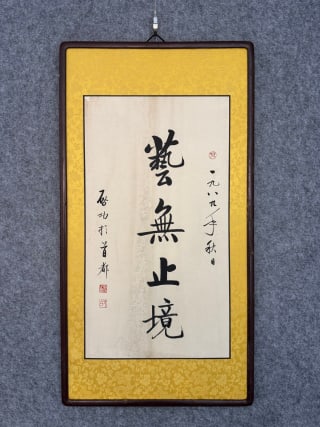 一九八九年秋日
藝無止境
啟功於首都